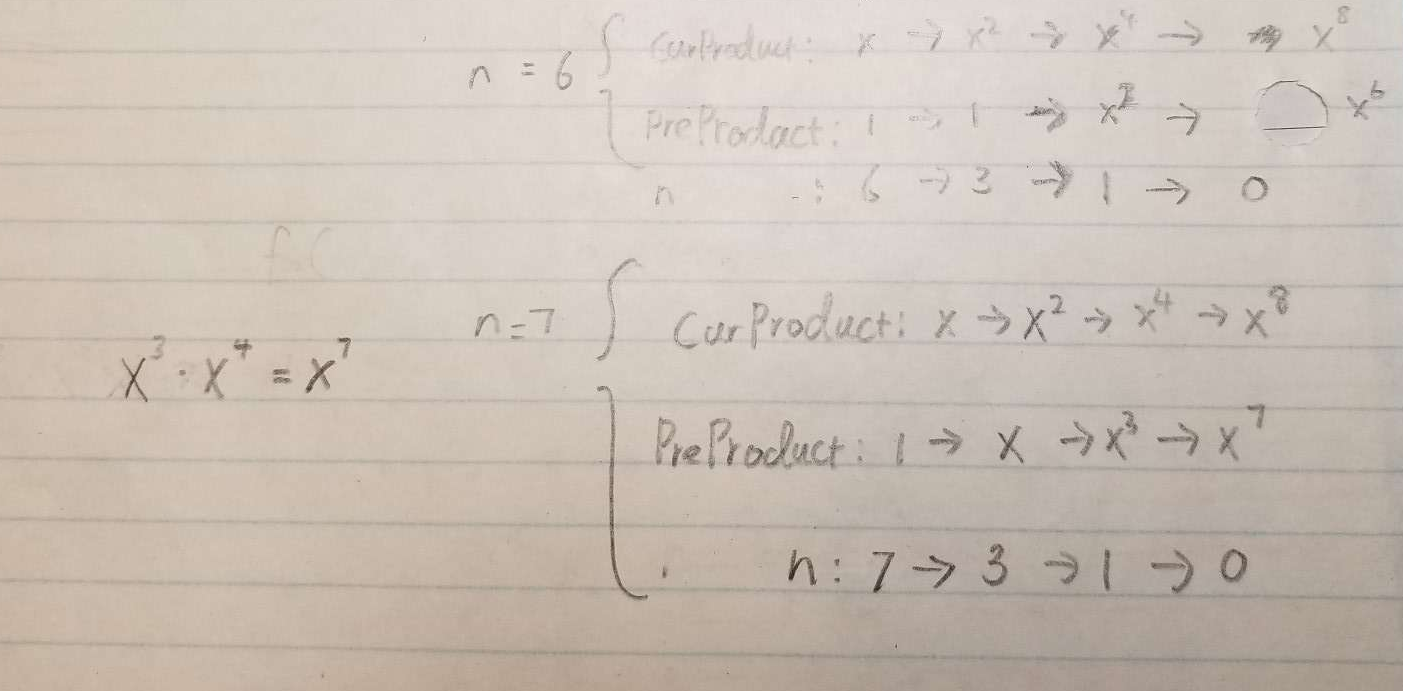 CurProduct: x → x² → x⁴ → x⁸
n = 6
PreProduct: 1 → 1 → x² → x⁶
n : 6 → 3 → 1 → 0
f(
n=7 CurProduct: x → x² → x⁴ → x⁸
x³ · x⁴ = x⁷
PreProduct: 1 → x → x³ → x⁷
n: 7 → 3 → 1 → 0